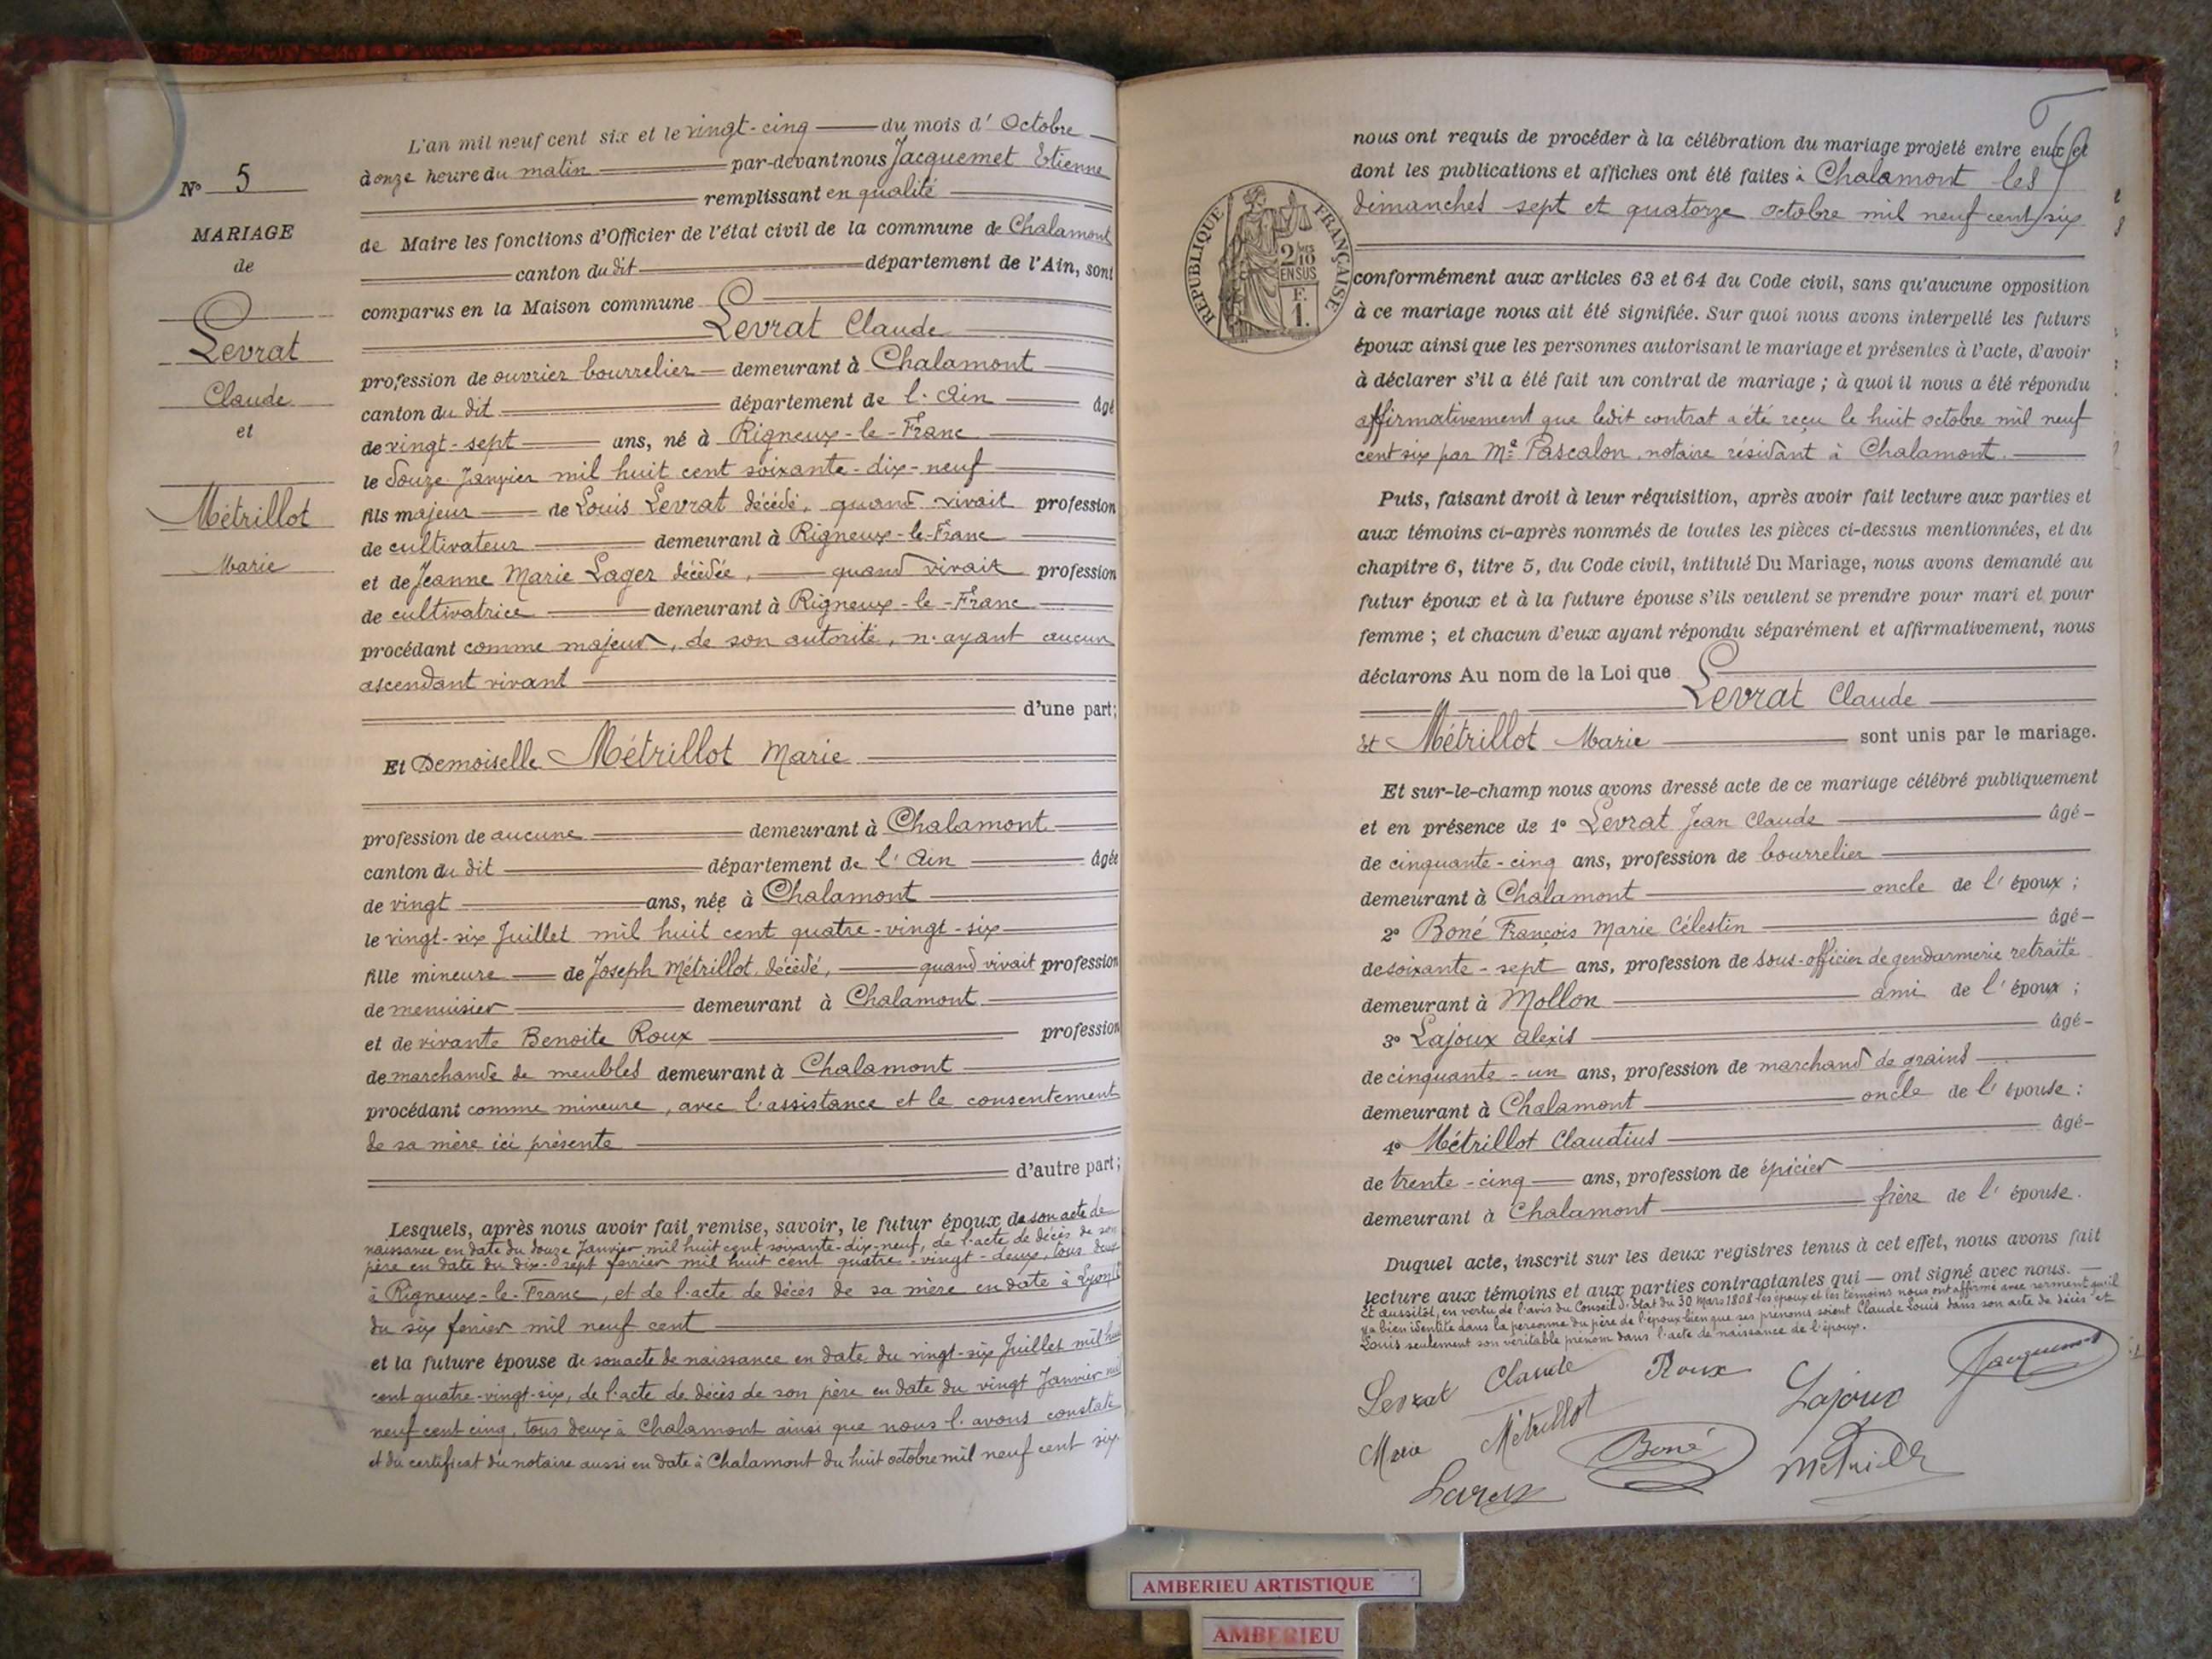 N° 5
MARIAGE
de
Levrat
Claude
et
Métrillot
Marie
L'an mil neuf cent six et le vingt-cinq du mois d'Octobre
à onze heure du matin par-devant nous Jacquemet Etienne
remplissant en qualité
de Maire les fonctions d'Officier de l'état civil de la commune de Chalamont
canton du dit département de l'Ain, sont
comparus en la Maison commune
Levrat Claude
profession de ouvrier bourrelier demeurant à Chalamont
canton du dit département de l'Ain âgé
de vingt-sept ans, né à Rigneux-le-Franc
le douze Janvier mil huit cent soixante-dix-neuf
fils majeur de Louis Levrat décédé, quand vivait profession
de cultivateur demeurant à Rigneux-le-Franc
et de Jeanne Marie Lager décédée, quand vivait profession
de cultivatrice demeurant à Rigneux-le-Franc
procédant comme majeur, de son autorité, n'ayant aucun
ascendant vivant
d'une part;
Et Demoiselle Métrillot Marie
profession de aucune demeurant à Chalamont
canton du dit département de l'Ain âgée
de vingt ans, née à Chalamont
le vingt-six Juillet mil huit cent quatre-vingt-six
fille mineure de Joseph Métrillot, décédé, quand vivait profession
de menuisier demeurant à Chalamont
et de vivante Benoite Roux profession
de marchande de meubles demeurant à Chalamont
procédant comme mineure, avec l'assistance et le consentement
de sa mère ici présente
d'autre part;
Lesquels, après nous avoir fait remise, savoir, le futur époux de son acte de
naissance en date du douze Janvier mil huit cent soixante-dix-neuf, de l'acte de décès de son
père en date du dix-sept fevrier mil huit cent quatre-vingt-deux, tous deux
à Rigneux-le-Franc, et de l'acte de décès de sa mère en date à Lyon
du six fevrier mil neuf cent
et la future épouse de son acte de naissance en date du vingt-six Juillet mil huit
cent quatre-vingt-six, de l'acte de décès de son père en date du vingt Janvier mil
neuf cent cinq, tous deux à Chalamont ainsi que nous l'avons constaté
et du certificat du notaire aussi en date à Chalamont du huit octobre mil neuf cent six
nous ont requis de procéder à la célébration du mariage projeté entre eux et
dont les publications et affiches ont été faites à Chalamont les
dimanches sept et quatorze octobre mil neuf cent six
RÉPUBLIQUE FRANÇAISE
2/10 MES
EN SUS
F.
1.
conformément aux articles 63 et 64 du Code civil, sans qu'aucune opposition
à ce mariage nous ait été signifiée. Sur quoi nous avons interpellé les futurs
époux ainsi que les personnes autorisant le mariage et présentes à l'acte, d'avoir
à déclarer s'il a été fait un contrat de mariage ; à quoi il nous a été répondu
affirmativement que ledit contrat a été reçu le huit octobre mil neuf
cent six par Me Pascalon, notaire résidant à Chalamont.
Puis, faisant droit à leur réquisition, après avoir fait lecture aux parties et
aux témoins ci-après nommés de toutes les pièces ci-dessus mentionnées, et du
chapitre 6, titre 5, du Code civil, intitulé Du Mariage, nous avons demandé au
futur époux et à la future épouse s'ils veulent se prendre pour mari et pour
femme ; et chacun d'eux ayant répondu séparément et affirmativement, nous
déclarons Au nom de la Loi que
Levrat Claude
Et Métrillot Marie sont unis par le mariage.
Et sur-le-champ nous avons dressé acte de ce mariage célébré publiquement
et en présence de 1° Levrat Jean Claude âgé
de cinquante-cinq ans, profession de bourrelier
demeurant à Chalamont oncle de l'époux ;
2° Boné François Marie Célestin âgé
de soixante-sept ans, profession de sous-officier de gendarmerie retraité
demeurant à Mollon ami de l'époux ;
3° Lajoux Alexis âgé
de cinquante-un ans, profession de marchand de grains
demeurant à Chalamont oncle de l'épouse :
4° Métrillot Claudius âgé
de trente-cinq ans, profession de épicier
demeurant à Chalamont frère de l'épouse.
Duquel acte, inscrit sur les deux registres tenus à cet effet, nous avons fait
lecture aux témoins et aux parties contractantes qui ont signé avec nous.
Et aussitôt, en vertu de l'avis du Conseil d'Etat du 30 Mars 1808 les époux et les témoins nous ont affirmé avec serment qu'il
ya bien identité dans la personne du père de l'époux bien que ses prénoms soient Claude Louis dans son acte de décès et
Louis seulement son véritable prénom dans l'acte de naissance de l'époux.
Levrat Claude Roux Lajoux Jacquemet
Marie Métrillot Boné Métrillot
Levrat
AMBERIEU ARTISTIQUE
AMBERIEU